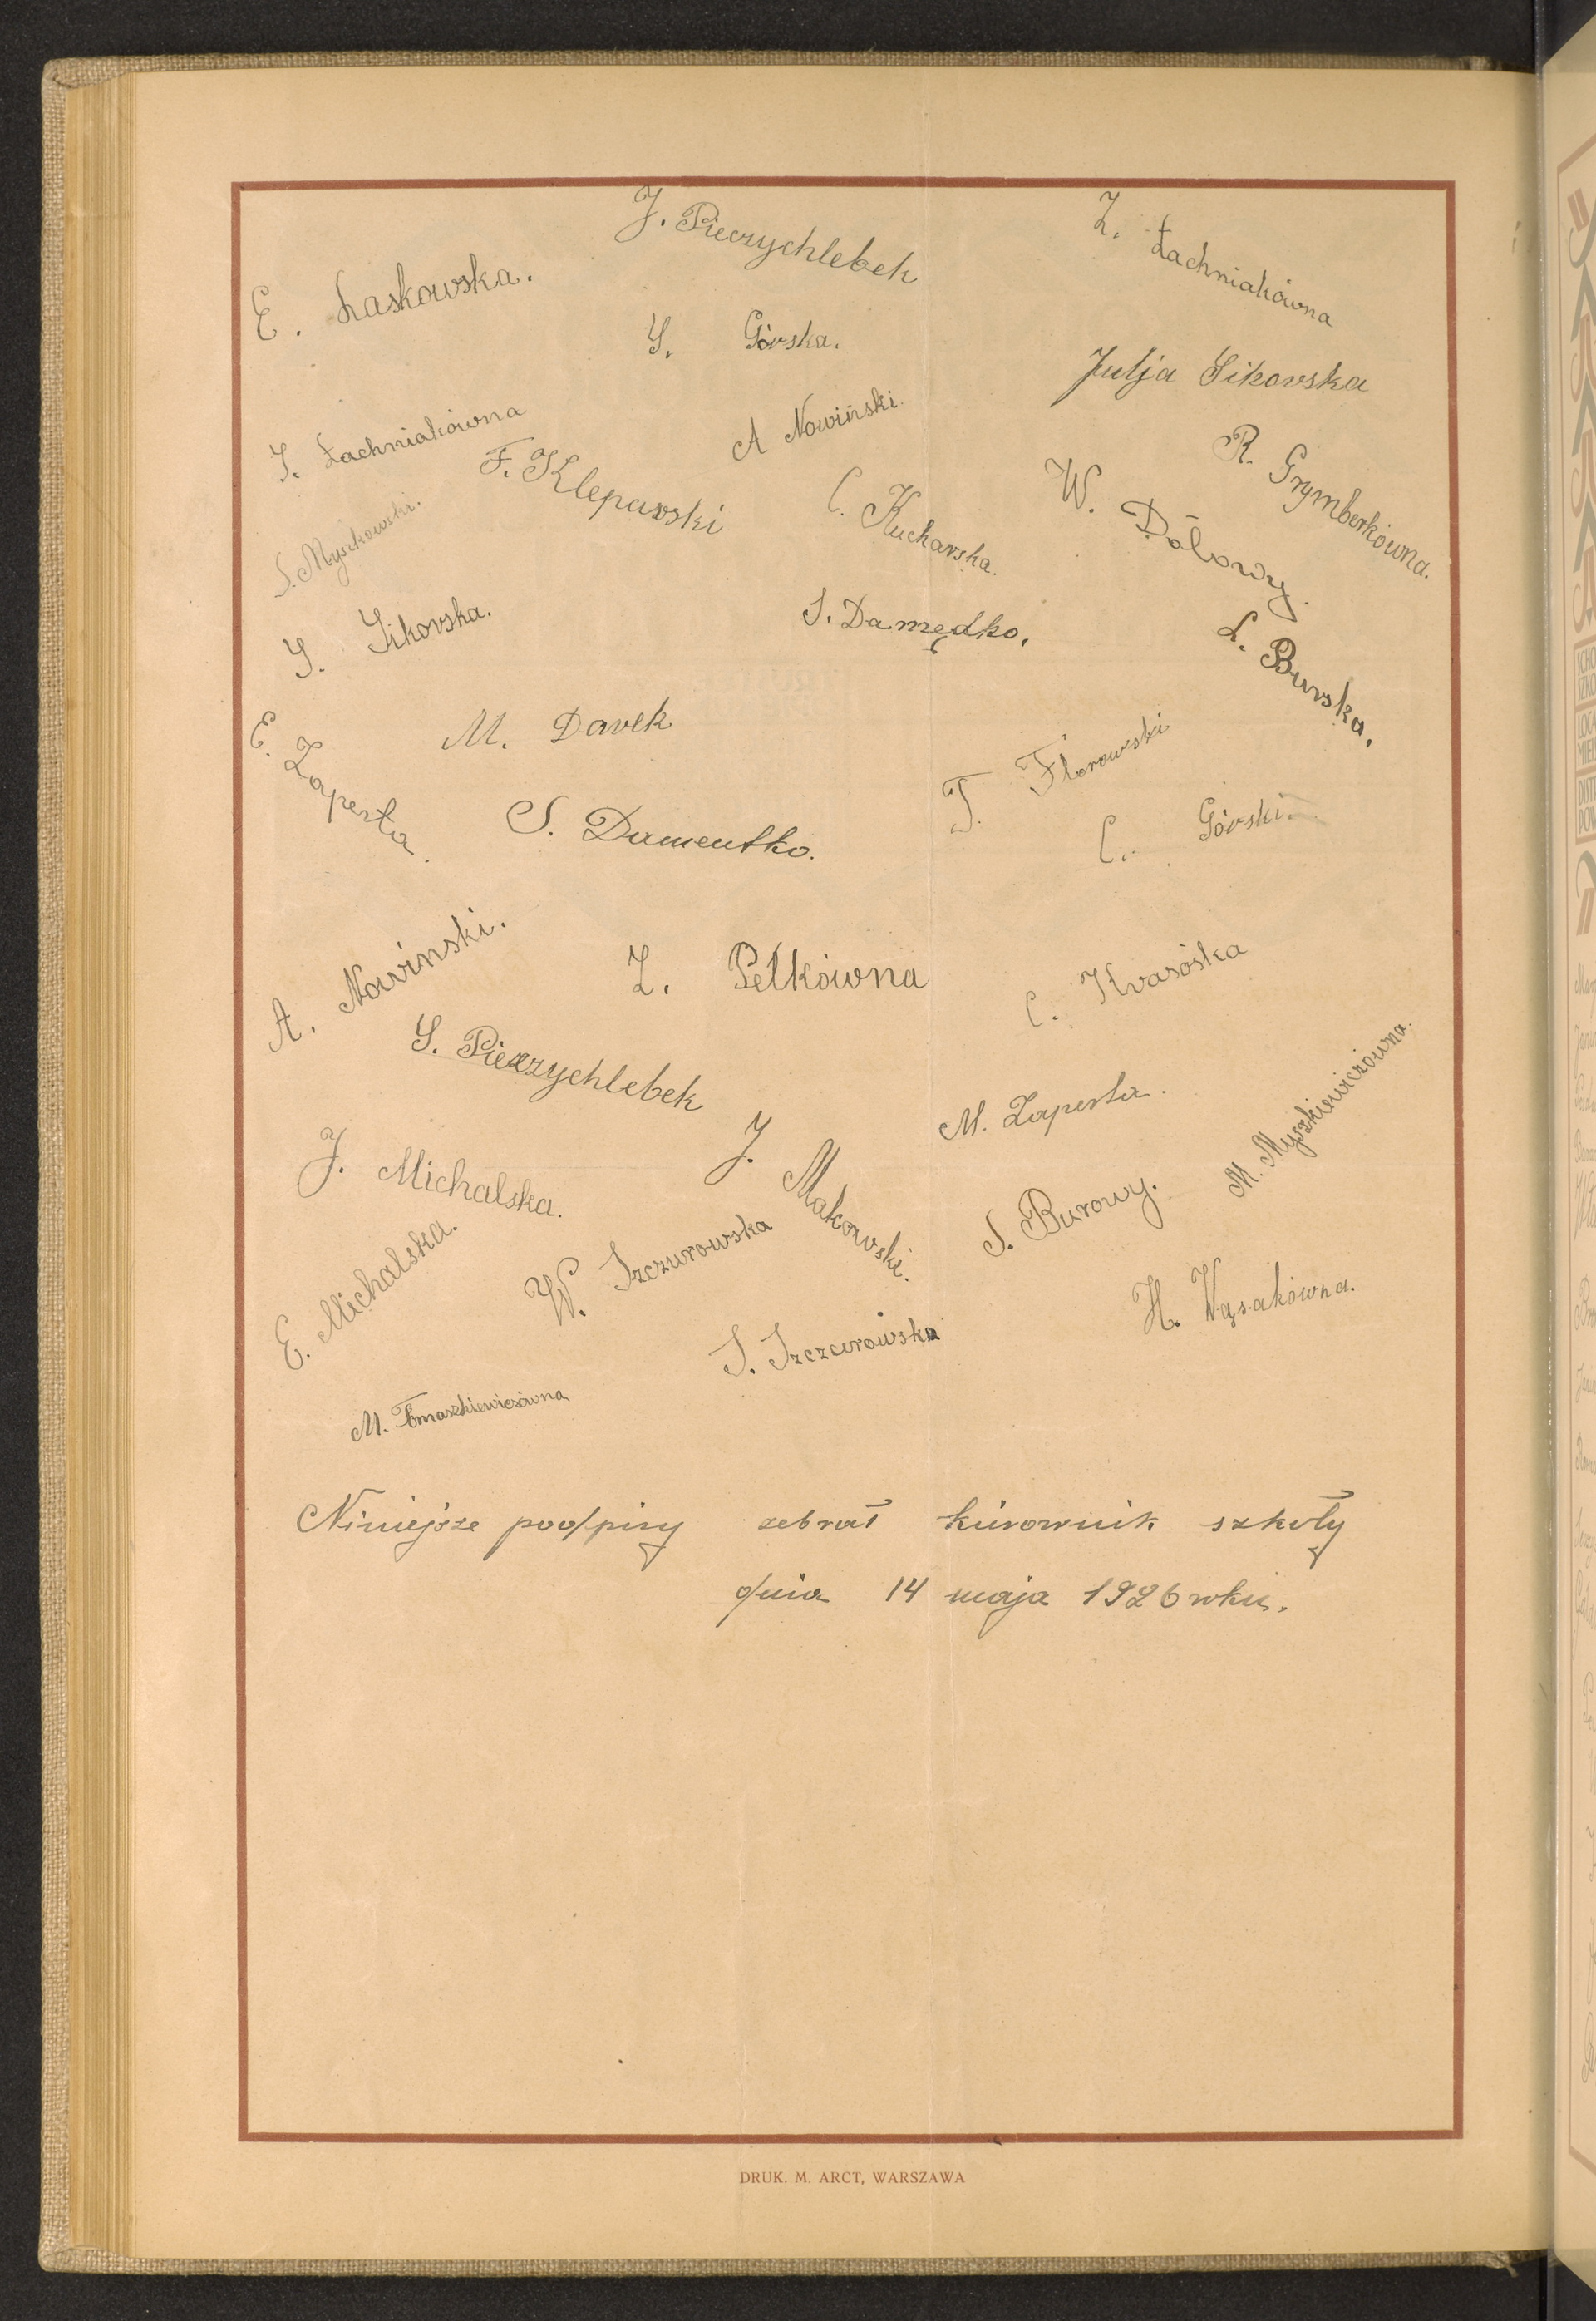 J. Pieczychlebek
Z. Łachniakówna
E. Laskowska.
S. Górska.
Julja Sikorska
S. Łachniakówna
A Nowiński.
R. Grymberkówna.
F. Kleparski
C. Kucharska.
W. Dólowy.
S. Myszkowski.
S. Sikorska.
S. Damędko.
L. Burska.
E. Zaperta.
M. Darek
T. Florowski
S. Damentko.
C. Górski.
A. Nowinski.
Z. Pełkówna
C. Kvasóska
S. Pieczychlebek
M. Zaperta.
M. Myszkiewiczówna.
J. Michalska.
J. Makowski.
S. Burowy.
E. Michalska.
W. Szczurowska
H. Wąsakówna.
S. Szczurowska
M. Tomaszkiewiczówna
Niniejsze podpisy zebrał kierownik szkoły
dnia 14 maja 1926 roku.
DRUK. M. ARCT, WARSZAWA